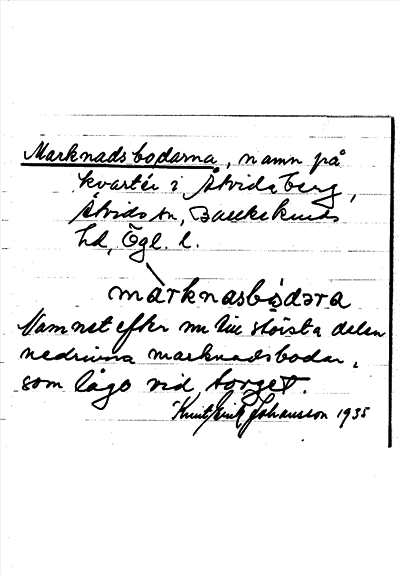 Marknadsbodarna, namn på
kvartér i Åtvidaberg,
Åtvids sn, Bankekinds
hd, Ögl. l.
márknasbòdəra
Namnet efter nu till största delen
nedrivna marknadsbodar,
som lågo vid torget.
Knut Erik Johansson 1935